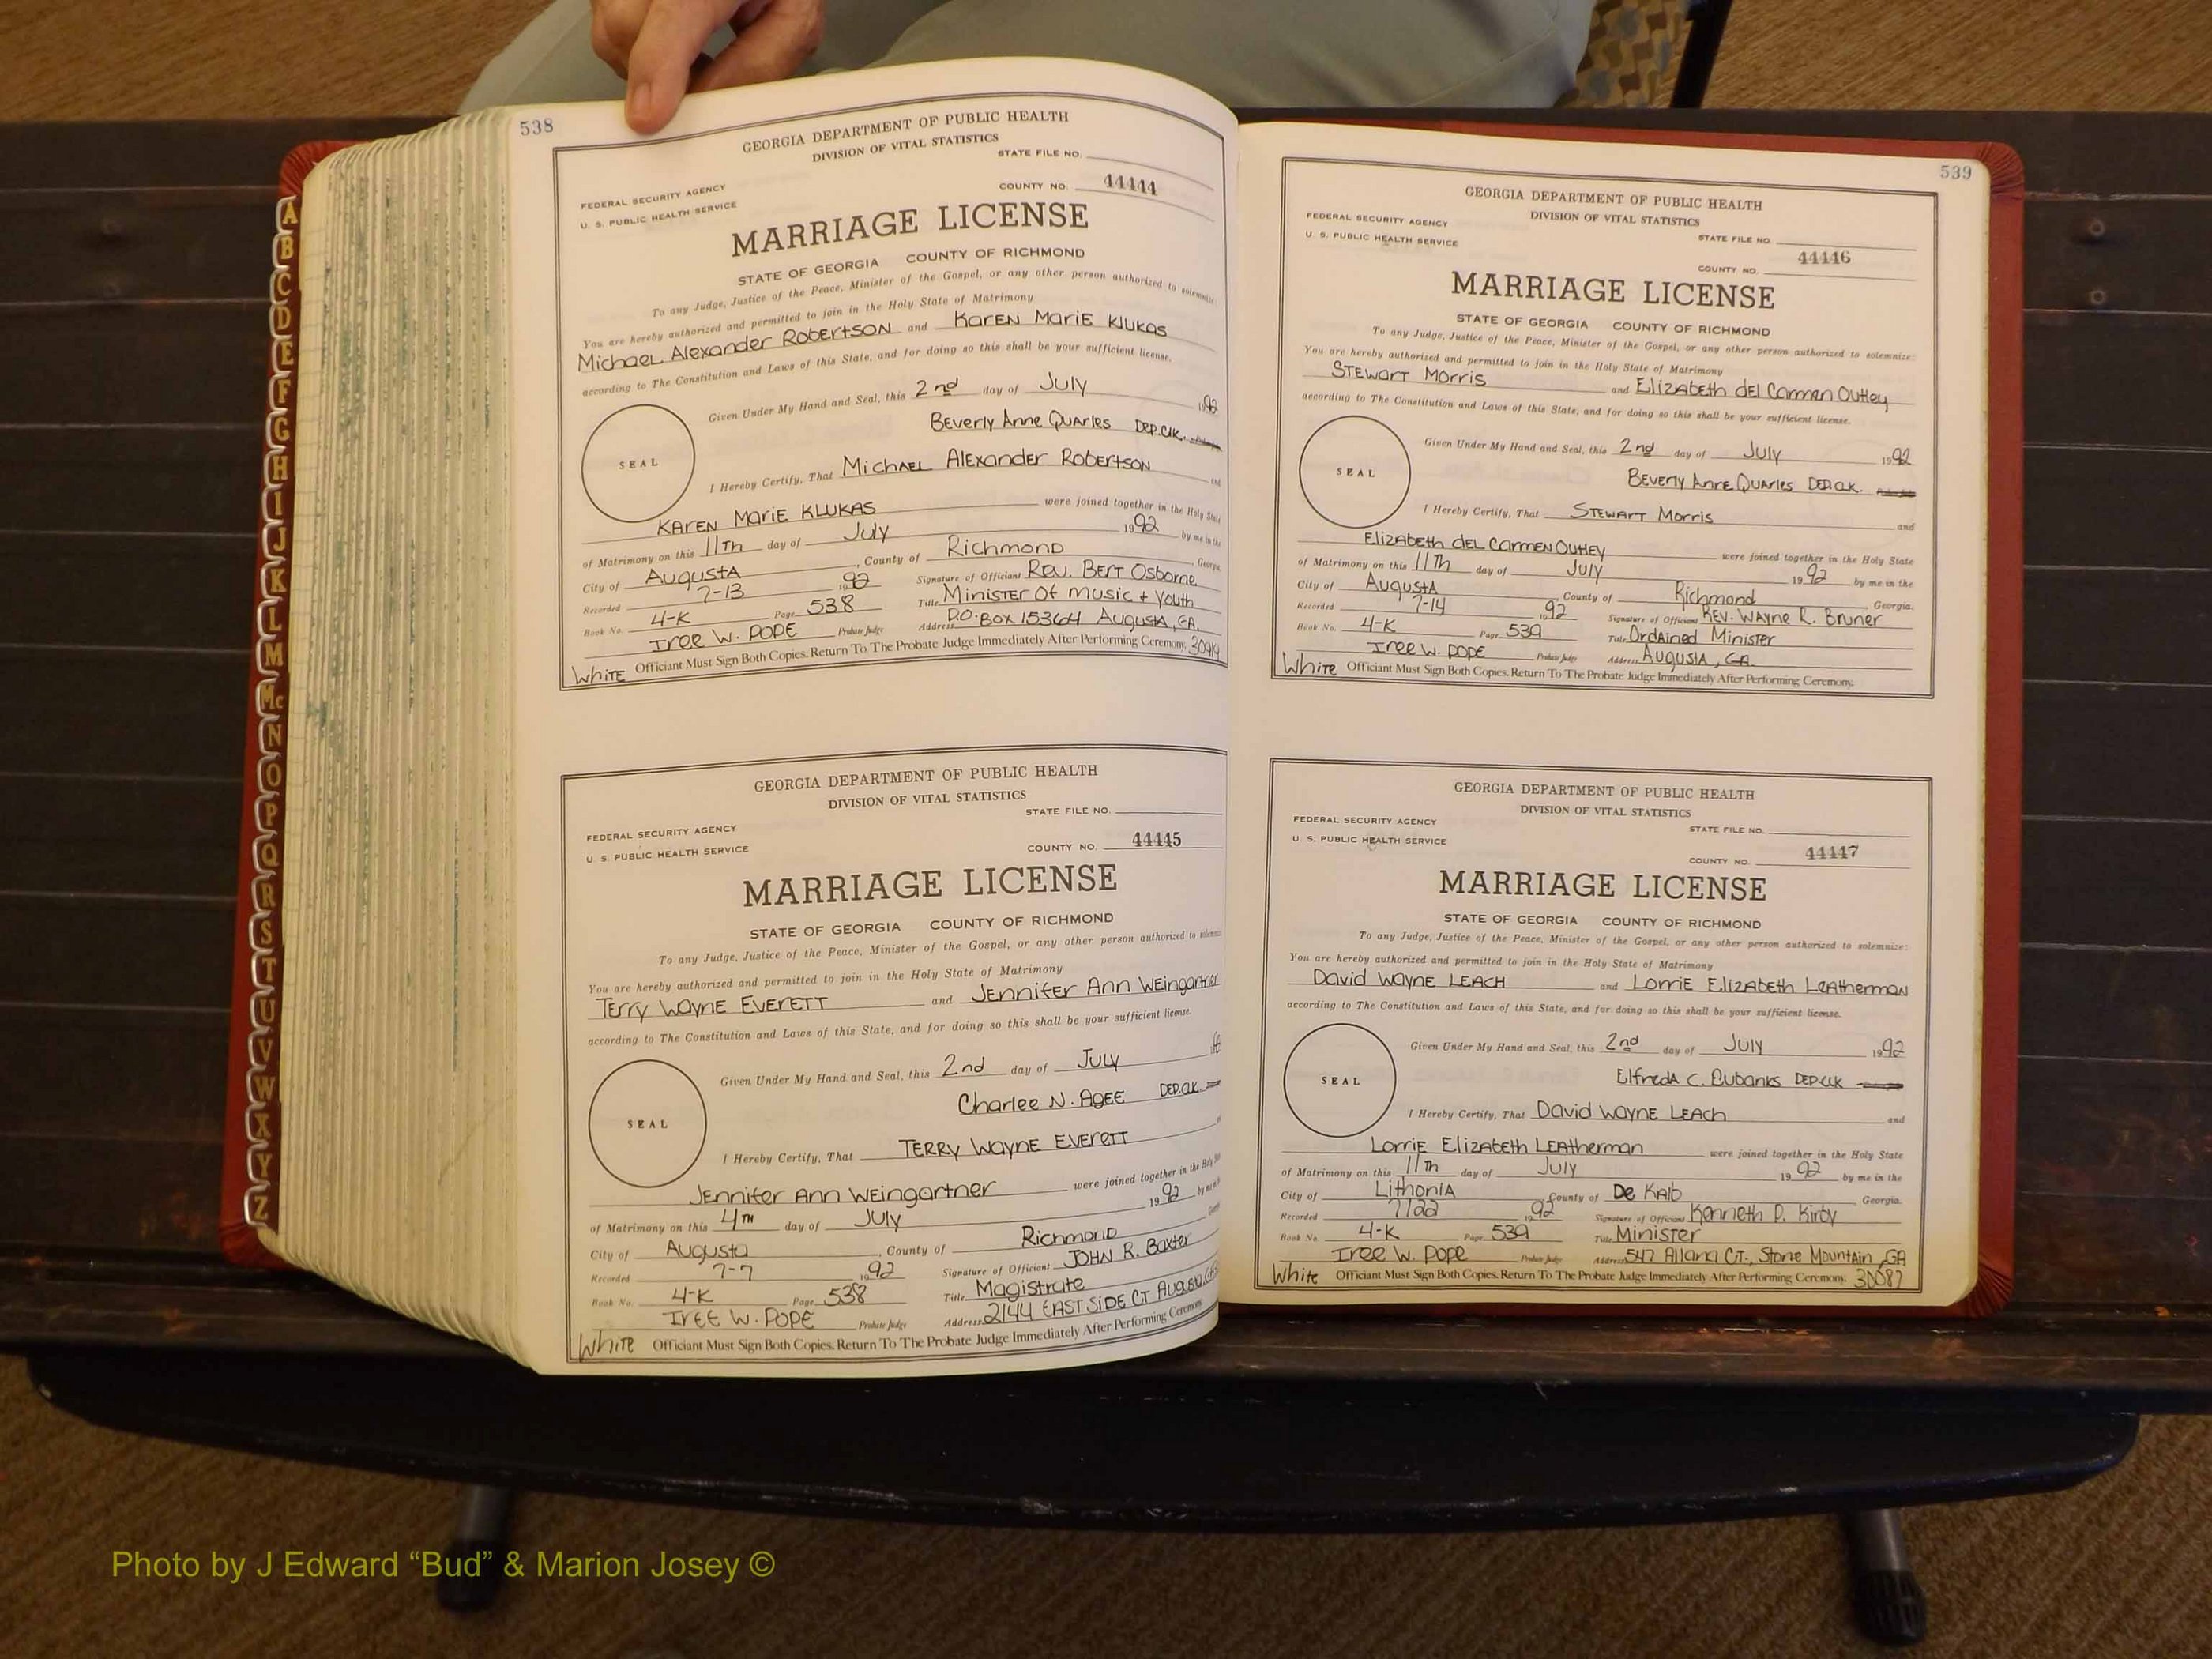 538
GEORGIA DEPARTMENT OF PUBLIC HEALTH
DIVISION OF VITAL STATISTICS
STATE FILE NO.
FEDERAL SECURITY AGENCY
U. S. PUBLIC HEALTH SERVICE
COUNTY NO. 44444
MARRIAGE LICENSE
STATE OF GEORGIA COUNTY OF RICHMOND
To any Judge, Justice of the Peace, Minister of the Gospel, or any other person authorized to solemnize:
You are hereby authorized and permitted to join in the Holy State of Matrimony
Michael Alexander Robertson and Karen Marie Klukas
according to The Constitution and Laws of this State, and for doing so this shall be your sufficient license.
Given Under My Hand and Seal, this 2nd day of July 1992
Beverly Anne Quarles Dep.Clk.
SEAL
I Hereby Certify, That Michael Alexander Robertson and
Karen Marie Klukas were joined together in the Holy State
of Matrimony on this 11Th day of July 1992 by me in the
City of Augusta, County of Richmond Georgia.
Recorded 7-13 1992 Signature of Officiant Rev. Bert Osborne
Book No. 4-K Page 538 Title Minister of Music + Youth
Iree W. Pope Probate Judge Address P.O. Box 15364 Augusta, GA.
White Officiant Must Sign Both Copies. Return To The Probate Judge Immediately After Performing Ceremony. 30919
GEORGIA DEPARTMENT OF PUBLIC HEALTH
DIVISION OF VITAL STATISTICS
STATE FILE NO.
FEDERAL SECURITY AGENCY
U. S. PUBLIC HEALTH SERVICE
COUNTY NO. 44445
MARRIAGE LICENSE
STATE OF GEORGIA COUNTY OF RICHMOND
To any Judge, Justice of the Peace, Minister of the Gospel, or any other person authorized to solemnize
You are hereby authorized and permitted to join in the Holy State of Matrimony
Terry Wayne Everett and Jennifer Ann Weingartner
according to The Constitution and Laws of this State, and for doing so this shall be your sufficient license.
Given Under My Hand and Seal, this 2nd day of July
Charlee N. Agee Dep.Clk.
SEAL
I Hereby Certify, That Terry Wayne Everett
Jennifer Ann Weingartner were joined together in the Holy State
of Matrimony on this 4TH day of July 1992 by me in
City of Augusta, County of Richmond
Recorded 7-7 1992 Signature of Officiant John R. Baxter
Book No. 4-K Page 538 Title Magistrate
Iree W. Pope Probate Judge Address 2144 East Side Ct Augusta
White Officiant Must Sign Both Copies. Return To The Probate Judge Immediately After Performing Ceremony.
539
GEORGIA DEPARTMENT OF PUBLIC HEALTH
DIVISION OF VITAL STATISTICS
FEDERAL SECURITY AGENCY
U. S. PUBLIC HEALTH SERVICE
STATE FILE NO.
COUNTY NO. 44446
MARRIAGE LICENSE
STATE OF GEORGIA COUNTY OF RICHMOND
To any Judge, Justice of the Peace, Minister of the Gospel, or any other person authorized to solemnize:
You are hereby authorized and permitted to join in the Holy State of Matrimony
Stewart Morris and Elizabeth del Carmen Outley
according to The Constitution and Laws of this State, and for doing so this shall be your sufficient license.
Given Under My Hand and Seal, this 2nd day of July 1992
Beverly Anne Quarles Dep.Clk.
SEAL
I Hereby Certify, That Stewart Morris and
Elizabeth del Carmen Outley were joined together in the Holy State
of Matrimony on this 11Th day of July 1992 by me in the
City of Augusta, County of Richmond Georgia.
Recorded 7-14 1992 Signature of Officiant Rev. Wayne R. Bruner
Book No. 4-K Page 539 Title Ordained Minister
Iree W. Pope Probate Judge Address Augusta, GA.
White Officiant Must Sign Both Copies. Return To The Probate Judge Immediately After Performing Ceremony.
GEORGIA DEPARTMENT OF PUBLIC HEALTH
DIVISION OF VITAL STATISTICS
FEDERAL SECURITY AGENCY
U. S. PUBLIC HEALTH SERVICE
STATE FILE NO.
COUNTY NO. 44447
MARRIAGE LICENSE
STATE OF GEORGIA COUNTY OF RICHMOND
To any Judge, Justice of the Peace, Minister of the Gospel, or any other person authorized to solemnize:
You are hereby authorized and permitted to join in the Holy State of Matrimony
David Wayne Leach and Lorrie Elizabeth Leatherman
according to The Constitution and Laws of this State, and for doing so this shall be your sufficient license.
Given Under My Hand and Seal, this 2nd day of July 1992
Elfreda C. Eubanks Dep.Clk
SEAL
I Hereby Certify, That David Wayne Leach and
Lorrie Elizabeth Leatherman were joined together in the Holy State
of Matrimony on this 11Th day of July 1992 by me in the
City of Lithonia County of De Kalb Georgia.
Recorded 7/22 1992 Signature of Officiant Kenneth D. Kirby
Book No. 4-K Page 539 Title Minister
Iree W. Pope Probate Judge Address 547 Allana Ct., Stone Mountain, GA
White Officiant Must Sign Both Copies. Return To The Probate Judge Immediately After Performing Ceremony. 30087
A
B
C
D
E
F
G
H
I
J
K
L
M
Mc
N
O
P
Q
R
S
T
U
V
W
X
Y
Z
Photo by J Edward “Bud” & Marion Josey ©